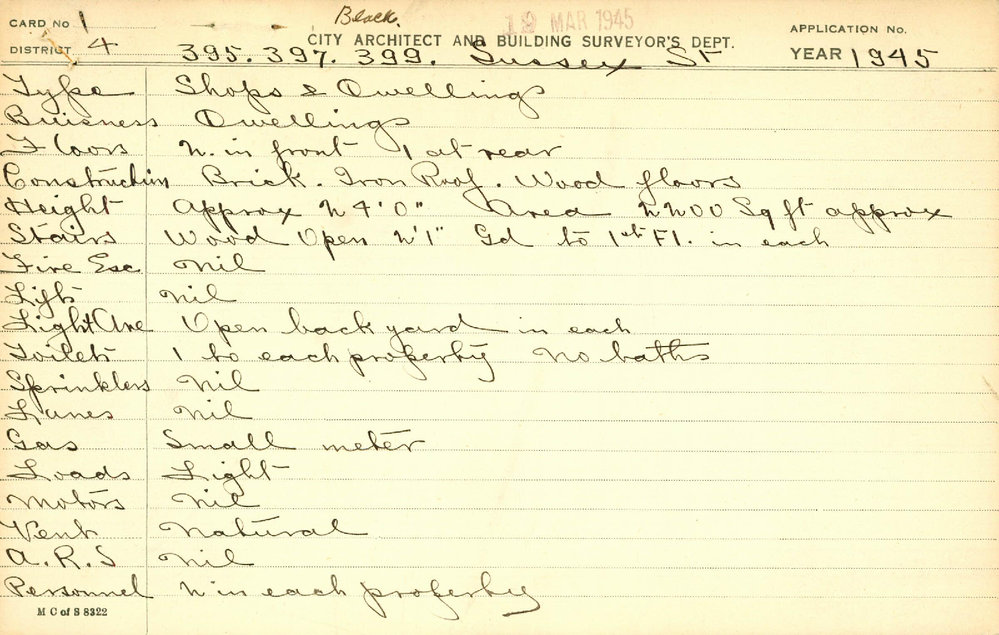 Block.
CARD No 1 12 MAR 1945 APPLICATION No.
CITY ARCHITECT AND BUILDING SURVEYOR'S DEPT.
DISTRICT 4 395. 397. 399. Sussex St YEAR 1945
Type Shops & Dwellings
Buisness Dwellings
Floors 2. in front 1 at rear
Construction Brick. Iron Roof. Wood floors
Height Approx 24'0" Area 2200 Sq ft approx
Stairs Wood Open 2'1" Gd to 1st Fl. in each
Fire Esc Nil
Lift Nil
Light Are Open back yard in each
Toilets 1 to each property No baths
Sprinklers Nil
Lanes Nil
Gas Small meter
Loads Light
Motors Nil
Vent Natural
A.R.S Nil
Personnel 2 in each property
M C of S 8322